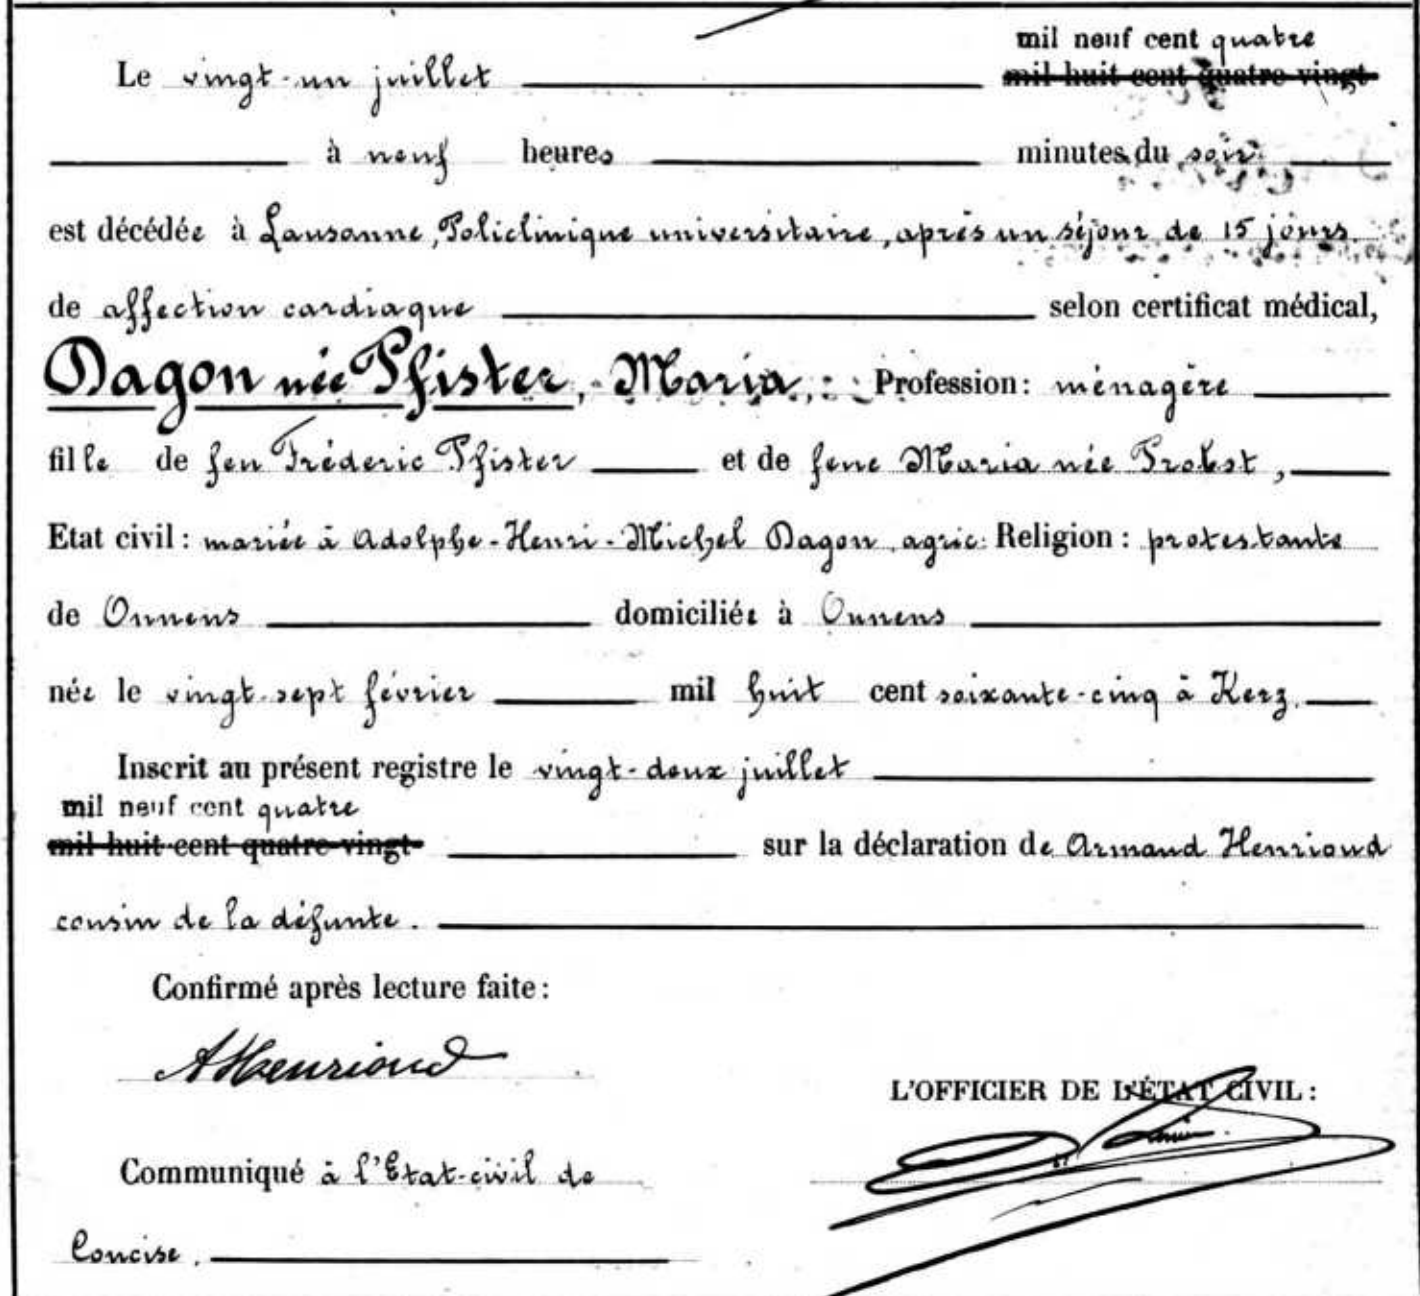 mil neuf cent quatre
Le vingt-un juillet mil huit cent quatre-vingt
à neuf heures minutes du soir
est décédée à Lausanne, Policlinique universitaire, après un séjour de 15 jours
de affection cardiaque selon certificat médical,
Dagon née Pfister, Maria, Profession: ménagère
fille de feu Fréderic Pfister et de feue Maria née Probst,
Etat civil: mariée à Adolphe-Henri-Michel Dagon, agric: Religion: protestante
de Onnens domiciliée à Onnens
née le vingt-sept février mil huit cent soixante-cinq à Kerz.
Inscrit au présent registre le vingt-deux juillet
mil neuf cent quatre
mil huit cent quatre-vingt sur la déclaration de Armand Henrioud
cousin de la défunte.
Confirmé après lecture faite:
AHenrioud
L'OFFICIER DE L'ÉTAT CIVIL:
Communiqué à l'Etat-civil de
Concise.